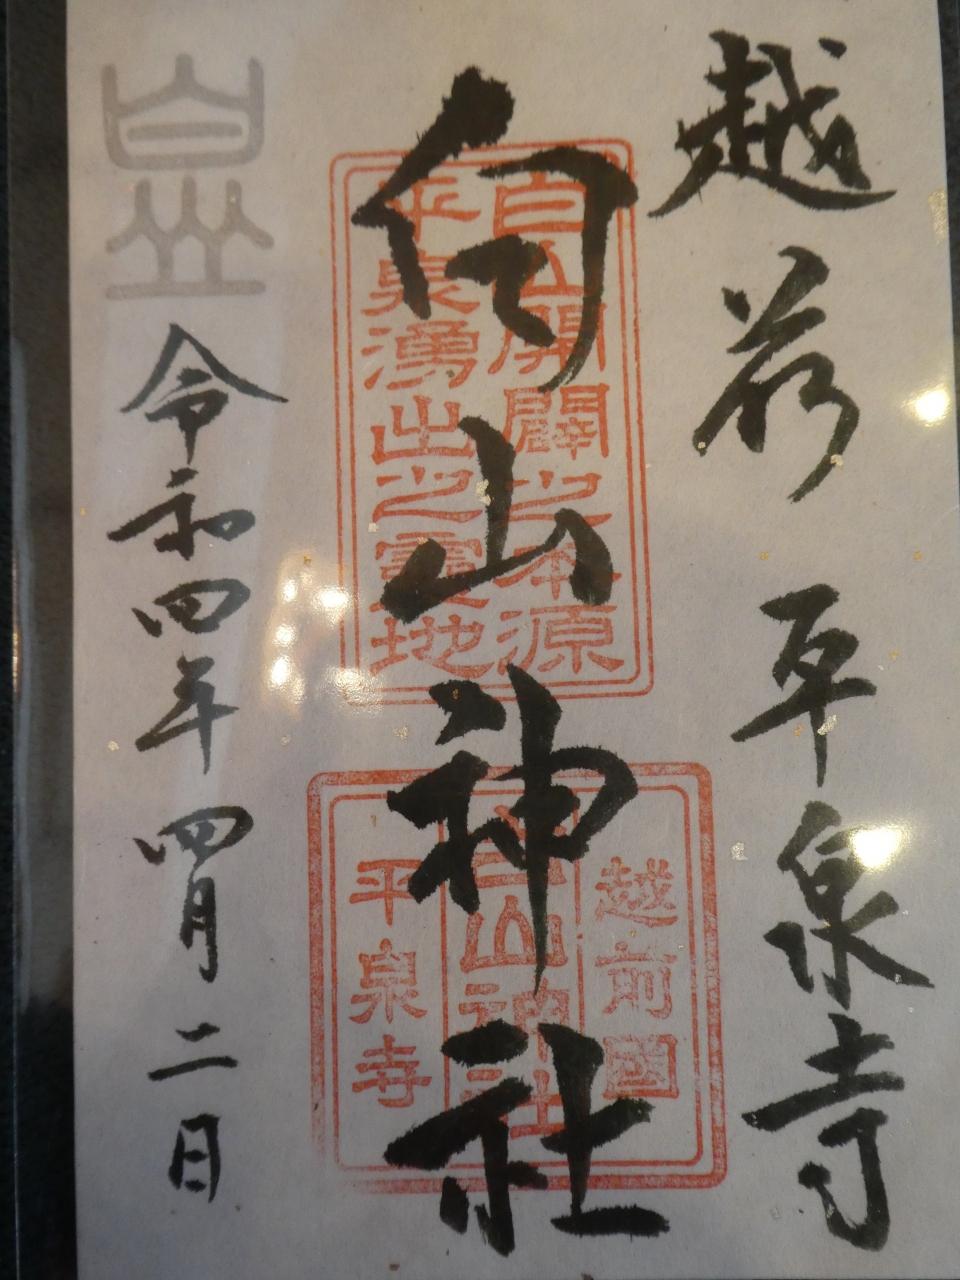 越前 平泉寺
白山神社
白山開闢之本源
平泉湧出之靈地
越前國
白山神社
平泉寺
令和四年 四月二日